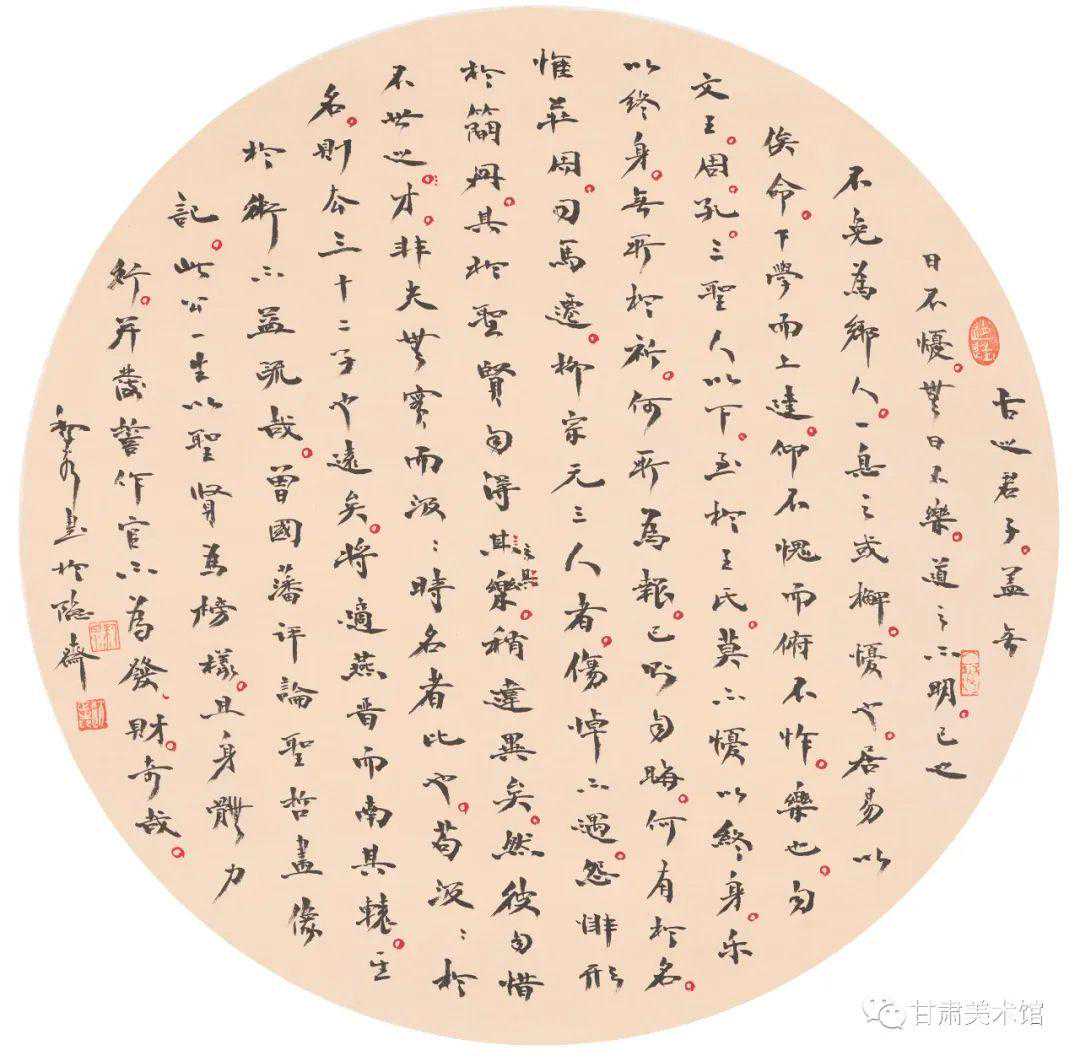 古之君子。蓋无
日不憂。無日不樂。道之不明。己之
不免為鄉人。一息之或懈。憂也。居易以
俟命。下學而上達。仰不愧而俯不怍。樂也。自
文王。周。孔。三聖人以下。至於王氏。莫不憂以終身。乐
以終身。無所於祈。何所為報。己則自晦。何有於名。
惟莊周。司馬遷。柳宗元三人者。傷悼不遇。怨悱形
於簡冊。其於聖賢自得其樂。稍違異矣。然彼自惜
不世之才。非夫無實而汲:時名者比也。苟汲:於
名。則去三十二子也遠矣。將適燕晉而南其轅。其
於術不益疏哉。曾國藩評論聖哲畫像
記。此公一生以聖賢為榜樣。且身體力
行。并發誓作官不為發財。奇哉。
書於隱齋
甘肃美术馆